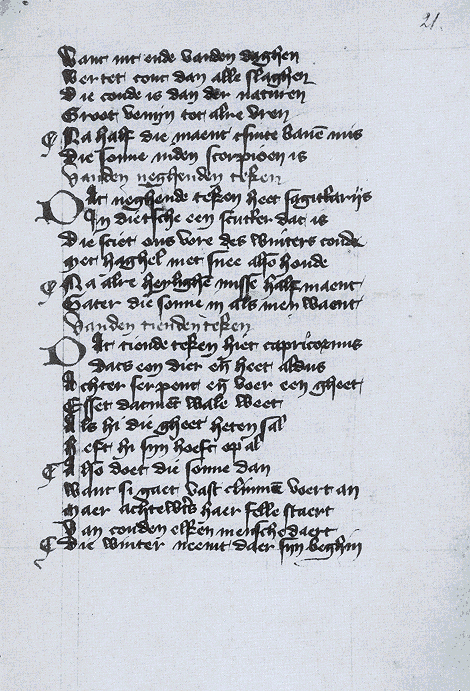 21.
Want int ende vanden daghen
Vertet cout dan alle slaghen
Die coude is dan der naturen
Groot venijn tot alre vren
Na half die maent tsinte bauē mis
Die sonne inden scorpioen is
Vanden neghenden teken
Dat neghende teken heet sagittarijs
In dietsche een scutter dat is
Die sciet ons vore des winters coude
Met haghel met snee also houde
Na alre heylighē misse half maent
Gater die sonne in als men waent
Vanden tienden teken
Dat tiende teken hiet capricornus
dats een dier eñ heet aldus
Achter serpent eñ voer een gheet
Esset datment wale weet
Als hi die gheet heten sal
Heft hi sijn hoeft op al
Also doet die sonne dan
Want si gaet vast climmē voert an
Maer achtewts haer felle staert
Van couden elken mensche daert
Die winter neemt daer sijn beghin